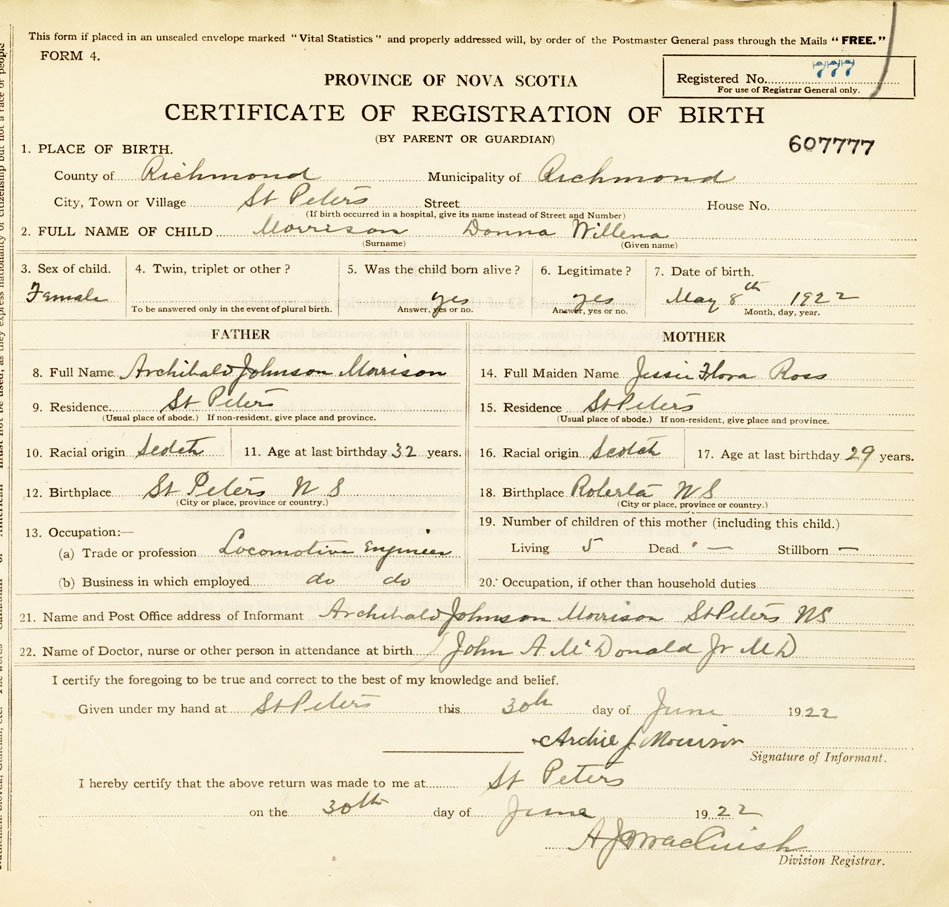 This form if placed in an unsealed envelope marked "Vital Statistics" and properly addressed will, by order of the Postmaster General pass through the Mails "FREE."
FORM 4.
Registered No. 777
For use of Registrar General only.
PROVINCE OF NOVA SCOTIA
CERTIFICATE OF REGISTRATION OF BIRTH
(BY PARENT OR GUARDIAN)
607777
1. PLACE OF BIRTH.
County of Richmond Municipality of Richmond
City, Town or Village St Peters Street House No.
(If birth occurred in a hospital, give its name instead of Street and Number)
2. FULL NAME OF CHILD Morrison Donna Willena
(Surname) (Given name)
3. Sex of child. 4. Twin, triplet or other? 5. Was the child born alive? 6. Legitimate? 7. Date of birth.
Female yes yes May 8th 1922
To be answered only in the event of plural birth. Answer, yes or no. Answer, yes or no. Month, day, year.
FATHER
8. Full Name Archibald Johnson Morrison
9. Residence St Peters
(Usual place of abode.) If non-resident, give place and province.
10. Racial origin Scotch 11. Age at last birthday 32 years.
12. Birthplace St Peters N S
(City or place, province or country.)
13. Occupation:—
(a) Trade or profession Locomotive Engineer
(b) Business in which employed do do
MOTHER
14. Full Maiden Name Jessie Flora Ross
15. Residence St Peters
(Usual place of abode.) If non-resident, give place and province.
16. Racial origin Scotch 17. Age at last birthday 29 years.
18. Birthplace Roberta NS
(City or place, province or country.)
19. Number of children of this mother (including this child.)
Living 5 Dead — Stillborn —
20. Occupation, if other than household duties
21. Name and Post Office address of Informant Archibald Johnson Morrison St Peters NS
22. Name of Doctor, nurse or other person in attendance at birth John A McDonald Jr MD
I certify the foregoing to be true and correct to the best of my knowledge and belief.
Given under my hand at St Peters this 30th day of June 1922
Archie J Morrison
Signature of Informant.
I hereby certify that the above return was made to me at St Peters
on the 30th day of June 1922
A J MacCuish
Division Registrar.